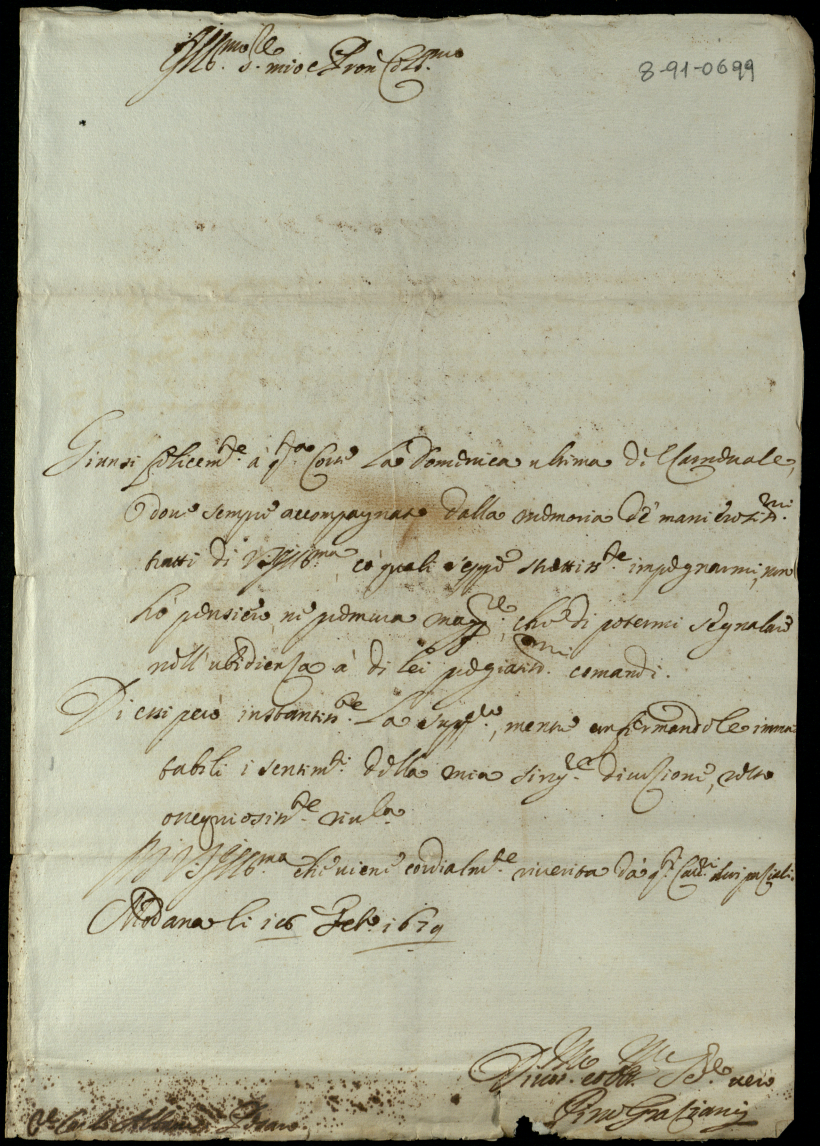 Ill.mo Sre mio e Pron Coll.mo
8-91-0699
Giunsi felicem.te à q.ta Corte la Domenica ultima di Carneuale,
doue sempre accompagnato dalla memoria de' manierosiss.mi
tratti di V.S. Ill.ma, co' quali seppe strettiss.te impegnarmi, non
hò pensiero, ne premura magg.re, che di potermi segnalare
nell'ubidienza à di lei pregiatiss.mi comandi.
Di essi però instantiss.te la supp.co, mentre confermandole immu
tabili i sentim.ti della mia sing.re diuozione, resto
ossequiosiss.te riuer.la
Di V.S. Ill.ma che uiene cordialm.te riuerita da q.ti Cau.ri
Modana li 16 Feb.o 1679
Diuot.mo et obb.mo S.re uero
Graziani
Carlo Pesaro.